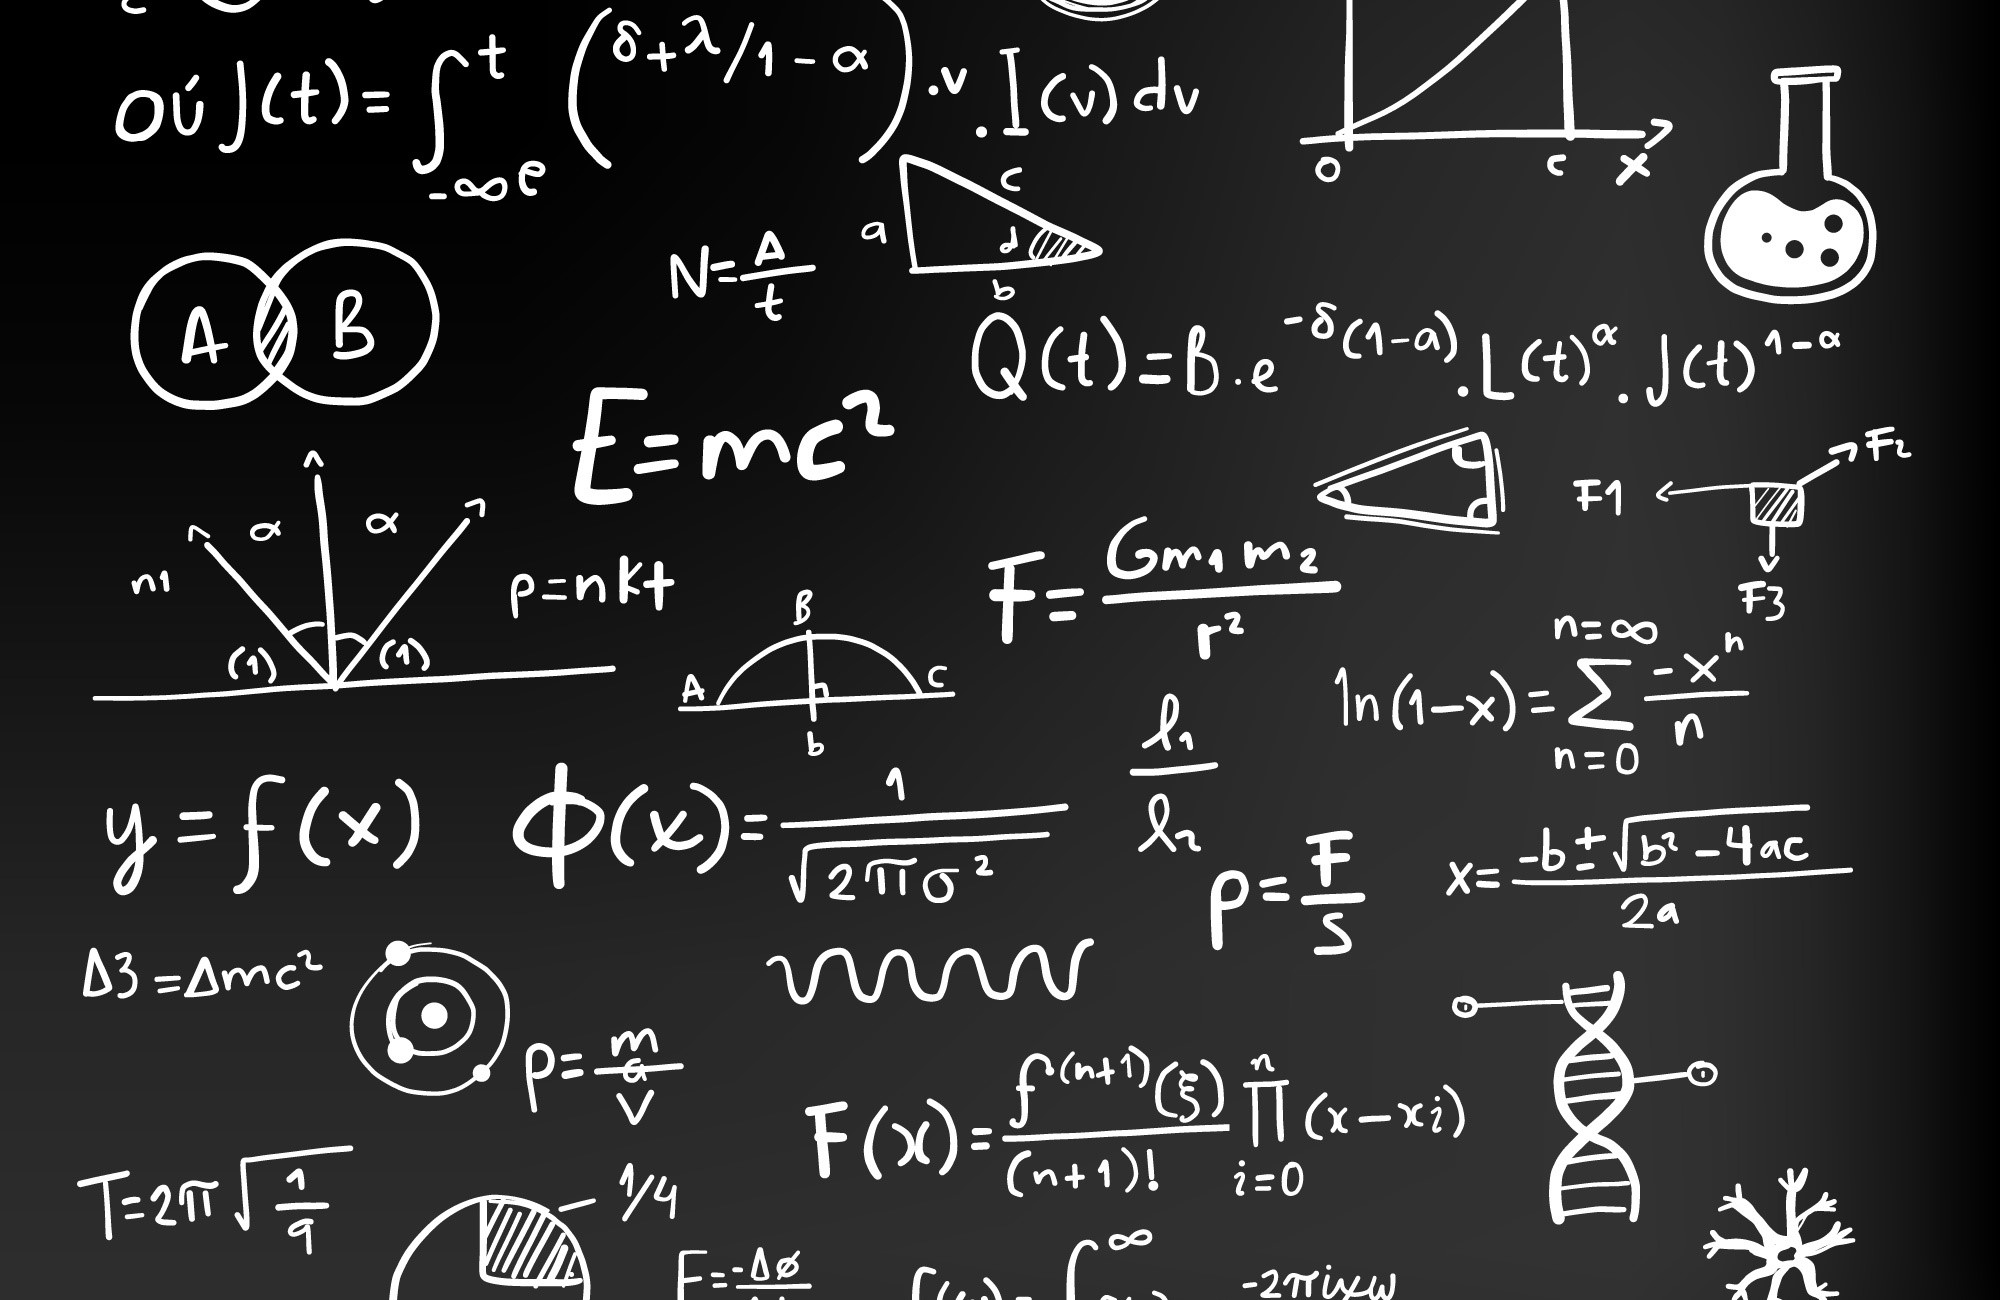 où J(t) = ∫_{-∞e}^{t} (^{δ+λ/1-α}) .v .I(v) dv
0 c x
a c d b
N = A/t
A B
Q(t) = B . e^{-δ(1-a)} . L(t)^α . J(t)^{1-α}
E = mc²
F1 F2 F3
n1 α α (1) (1)
p = nkt
F = Gm₁ m₂ / r²
A B C b
ln(1-x) = Σ_{n=0}^{n=∞} -xⁿ / n
l₁ / l₂
y = f(x)
φ(x) = 1 / √2πσ²
p = F/S
x = -b ± √b² - 4ac / 2a
Δ3 = Δmc²
F(x) = f^{(n+1)}(ξ) / (n+1)! ∏_{i=0}^{n} (x - xi)
T = 2π √1/9
1/4
-Δø
∞
-2πixω